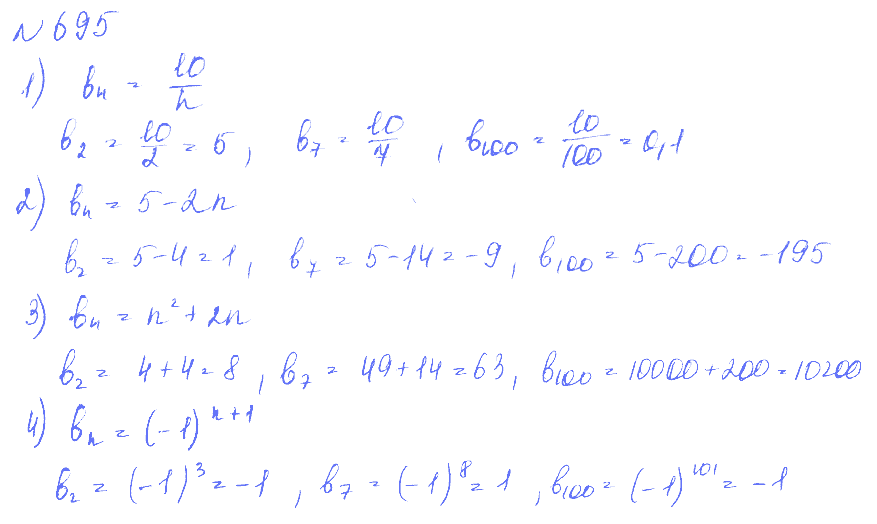 № 695
1) bₙ = 10/n
b₂ = 10/2 = 5, b₇ = 10/7, b₁₀₀ = 10/100 = 0,1
2) bₙ = 5-2n
b₂ = 5-4 = 1, b₇ = 5-14 = -9, b₁₀₀ = 5-200 = -195
3) bₙ = n² + 2n
b₂ = 4+4 = 8, b₇ = 49+14 = 63, b₁₀₀ = 10000+200 = 10200
4) bₙ = (-1)ⁿ⁺¹
b₂ = (-1)³ = -1, b₇ = (-1)⁸ = 1, b₁₀₀ = (-1)¹⁰¹ = -1